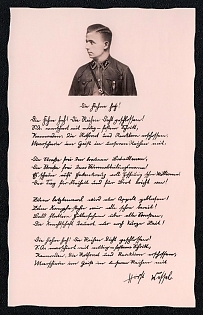 Die Fahne hoch!
Die Fahne hoch! Die Reihen dicht geschlossen!
S.A. marschiert mit ruhig-festem Schritt,
Kameraden, die Rotfront und Reaktion erschossen,
Marschieren im Geist in unseren Reihen mit.
Die Strasse frei den braunen Bataillonen,
Die Strasse frei dem Sturmabteilungsmann!
Es schauen aufs Hakenkreuz voll Hoffnung schon Millionen
Der Tag für Freiheit und für Brot bricht an!
Zum letztenmal wird nun Appell geblasen!
Zum Kampfe steh'n wir alle schon bereit!
Bald flattern Hitlerfahnen über alle Strassen,
Die Knechtschaft dauert nur noch kurze Zeit!
Die Fahne hoch! Die Reihen dicht geschlossen!
S.A. marschiert mit ruhig-festem Schritt,
Kameraden, die Rotfront und Reaktion erschossen,
Marschieren im Geist in unseren Reihen mit
Horst Wessel